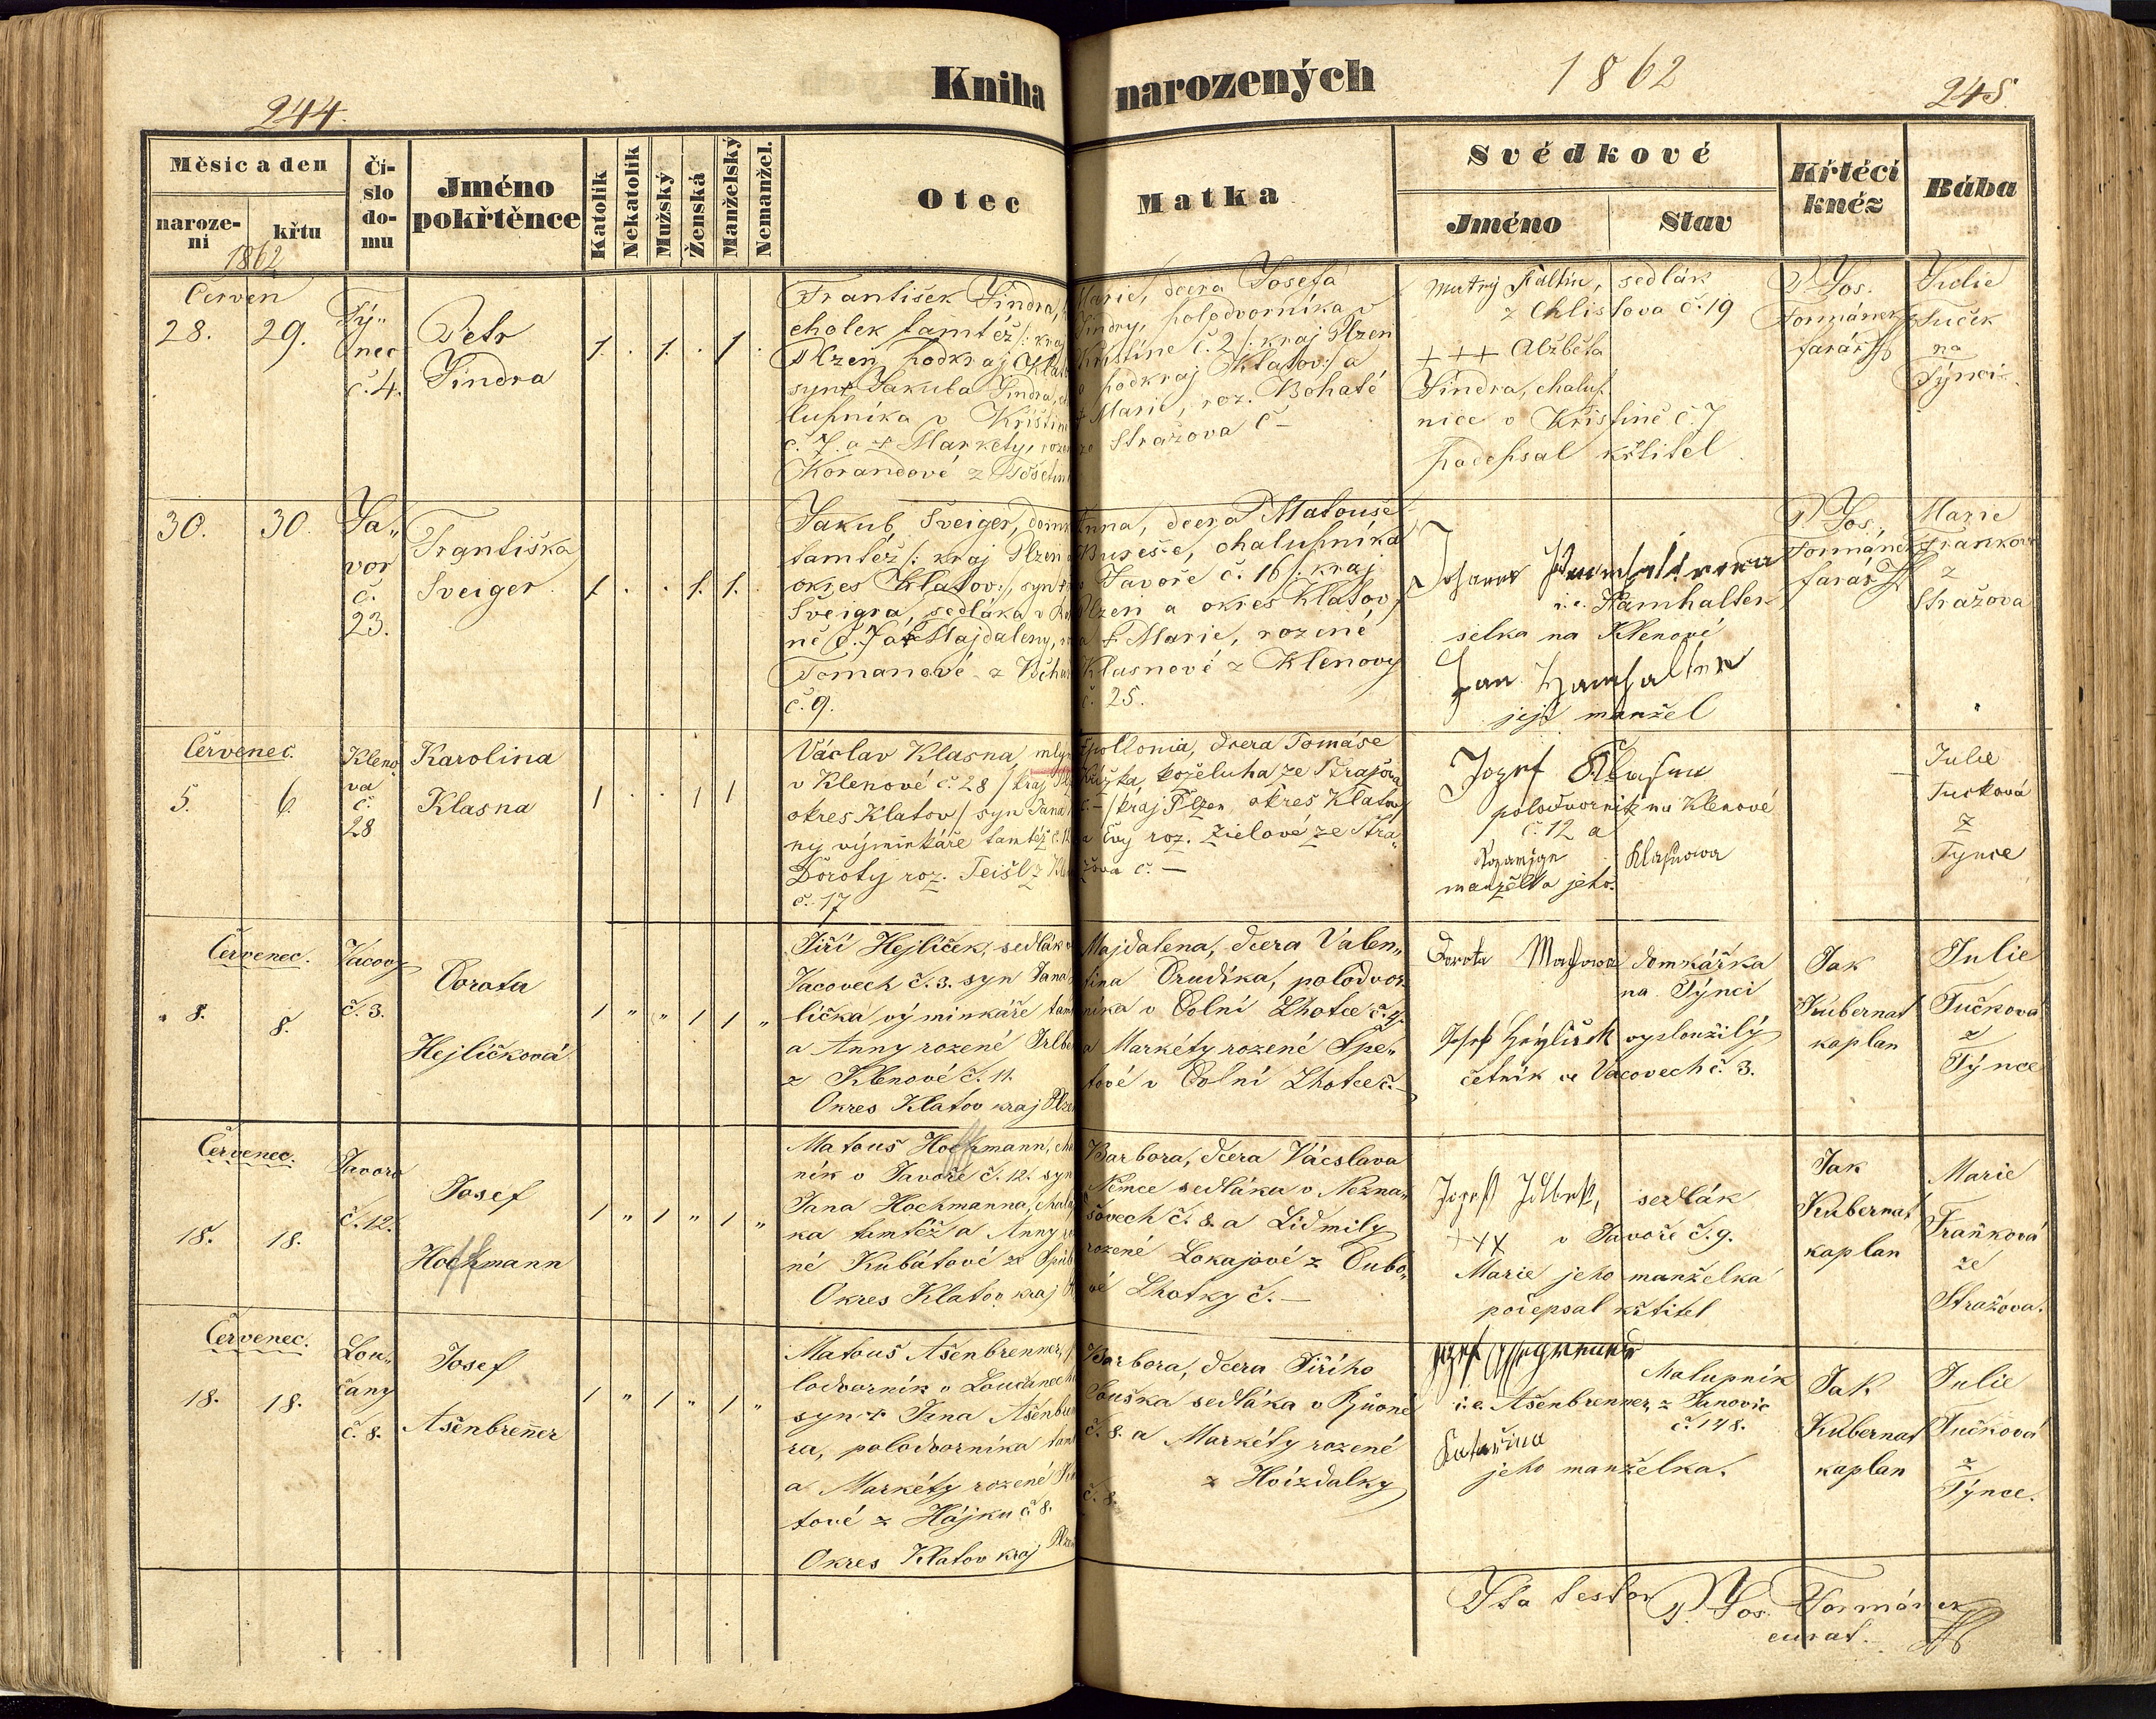 244.
Kniha narozených
1862
245.
Měsíc a den
naroze-
ní
křtu
1862
Čí-
slo
do-
mu
Jméno
pokřtěnce
Katolík
Nekatolík
Mužský
Ženská
Manželský
Nemanžel.
Otec
Matka
Svědkové
Jméno
Stav
Křtěcí
kněz
Bába
Červen
28.
29.
Tý„
nec
č. 4.
Petr
Jindra
1. . 1. . 1 .
František Jindra,
cholek tamtéž /: kraj
Plzeň, podkraj Klato
syn † Jakuba Jindra, cha
lupníka v Křištíne
č. 7. a † Markéty, rozen
Korandové z
Marie, dcera Josefa
Jindry, polodvorníka v
Křištíne č. 2 /: kraj Plzeň
podkraj Klatov:/ a
† Marie, roz. Bohaté
ze Stražova č –
Matěj Faltin, sedlák
z Chlistova č. 19
+++ Alžběta
Jindra, chalup.
nice v Křištíně č. 7
podepsal křtitel.
P. Jos.
Formánek
farář
Julie
Tuček
na
Týnci.
30.
30.
Ja„
vor
č.
23.
Františka
Šveiger.
1 . . 1. 1.
Jakub Šveiger, domk
tamtéž /: kraj Plzeň a
okres Klatov:/, syn †
Šveigra, sedláka v
ně č. 7 a † Majdaleny,
Tomanové z
č. 9.
Anna, dcera Matouše
Bureše, chalupníka
v Javoře č. 16 /: kraj
Plzeň a okres Klatov
a † Marie, rozené
Klasnové z Klenovy
č. 25.
i. e. Hamhalter
selka na Klenové
Jan Hamhalter
její manžel
P. Jos.
Formánek
farář
Marie
Frankova
z
Stražova
Červenec.
5.
6.
Kleno
va
č.
28
Karolina
Klasna
1 . . 1 1
Václav Klasna, mlyn
v Klenové č. 28 / kraj Plz
okres Klatov / syn Jana
ny výminkáře tamtéž č. 12
Doroty roz. Teišl z
č. 17
Apollonia, dcera Tomáše
Křižka, koželuha ze Stražova
č. – / kraj Plzen okres Klatov
a Evy roz. Zielové ze Stra„
žova č. –
Jozef Klasna
polodvornik na Klenové
č. 12 a
Klasnowa
manželka jeho.
Julie
Tucková
z
Tynce
Červenec.
8.
8.
Vácovy
č. 3.
Dorota
Hejlíčková
1 „ „ 1 1 „
Jiří Hejlíček, sedlák v
Vacovech č. 3. syn Jana
líčka výminkáře tam
a Anny rozené Irlbe
z Klenové č. 11.
Okres Klatov kraj Plze
Majdalena, dcera Valen„
tina Drudíka, polodvor
níka v Dolní Lhotce č. 4.
a Markéty rozené Špe„
tové v Dolní Lhotce č. –
Dorota domkářka
na Týnci
Josef Heylicek vysloužilý
četník ve Vacovech č. 3.
Jak
Kubernat
kaplan
Julie
Tučková
z
Týnce
Červenec.
18.
18.
Javora
č. 12.
Josef
Hoffmann
1 „ 1 „ 1 „
Matouš Hoffmann, cha
ník v Javoře č. 12. syn
Jana Hochmanna, chalup
ka tamtéž a Anny ro
né Kubátové ze
Okres Klatov kraj
Barbora, dcera Václava
Němce sedláka v Nezna„
šovech č. 8. a Lidmily
rozené Lokajové z Dubo„
vé Lhotky č. –
Jozef sedlák
+xx v Javoře č. 9.
Marie jeho manželka
podepsal křtitel
Jak
Kubernat
kaplan
Marie
Fraňková
ze
Stražova.
Červenec.
18.
18.
Lou„
čany
č. 8.
Josef
Ašenbrenner
1 „ 1 „ 1 „
Matouš Ašenbrenner,
lodvorník v Loučanech
syn † Jana Ašenbren
ra, polodvorníka tam
a Markéty rozené
tové z Hájku č. 8.
Okres Klatov kraj Plze
Barbora, dcera Jiřího
Souška sedláka v
č. 8. a Markéty rozené
z Hvízdalky
č. 8.
Jozef
i. e. Ašenbrenner, z Janovic
č. 148.
Katařina
jeho manželka.
Jak.
Kubernat
kaplan
Julie
Tučková
z
Týnce.
Ita testor P. Jos. Formánek
curat.